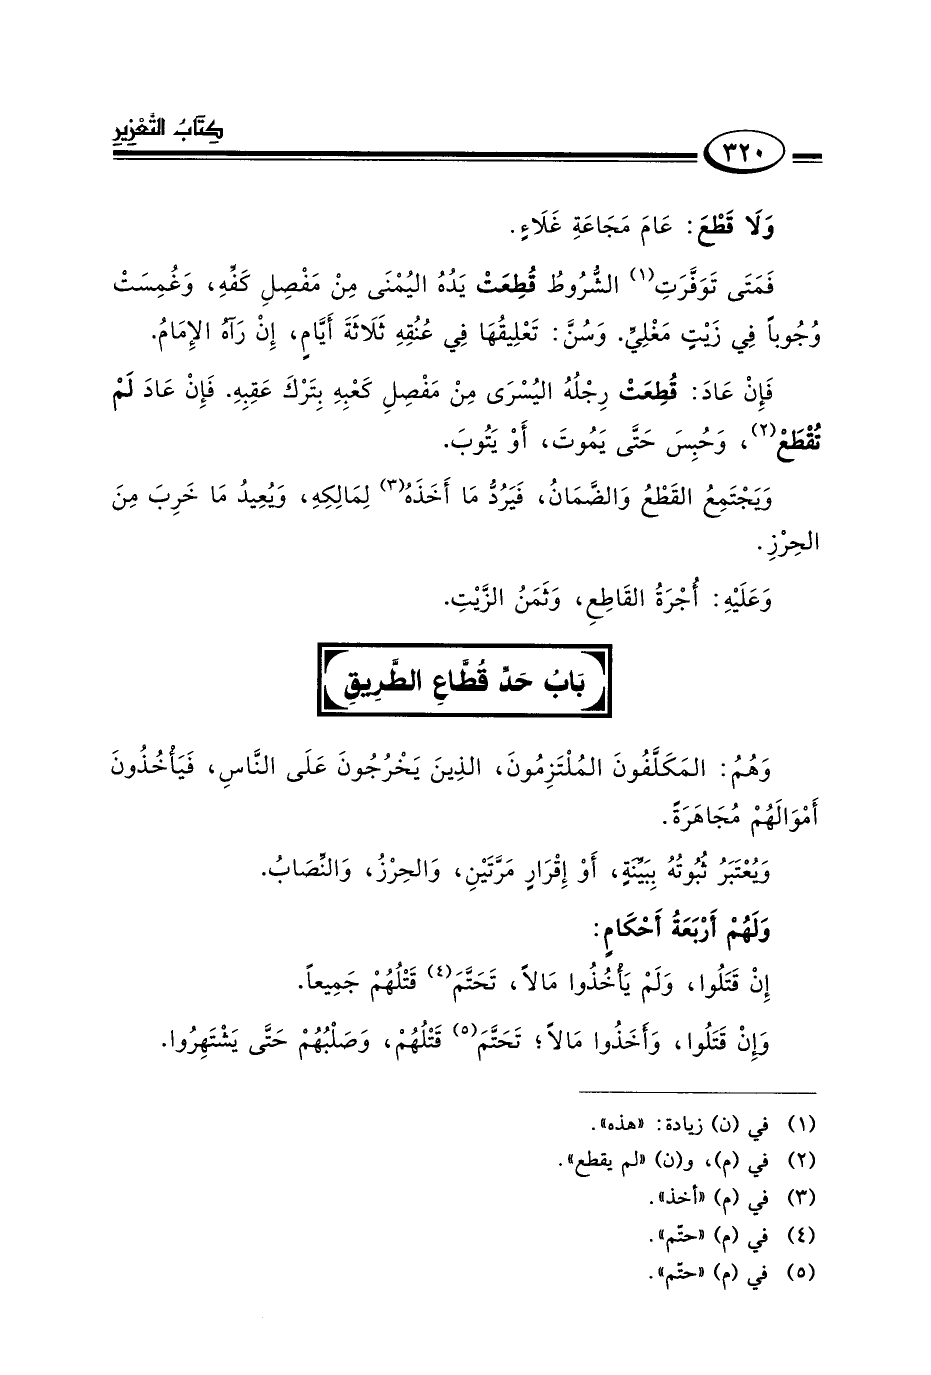 كِتَابُ التَّعْزِيرِ
٣٢٠
وَلَا قَطْعَ: عَامَ مَجَاعَةِ غَلَاءٍ.
فَمَتَى تَوَفَّرَتِ(١) الشُّرُوطُ قُطِعَتْ يَدُهُ اليُمْنَى مِنْ مَفْصِلِ كَفِّهِ، وَغُمِسَتْ
وُجُوباً فِي زَيْتٍ مَغْلِيٍّ. وَسُنَّ: تَعْلِيقُهَا فِي عُنُقِهِ ثَلَاثَةَ أَيَّامٍ، إِنْ رَآهُ الإِمَامُ.
فَإِنْ عَادَ: قُطِعَتْ رِجْلُهُ اليُسْرَى مِنْ مَفْصِلِ كَعْبِهِ بِتَرْكَ عَقِبِهِ. فَإِنْ عَادَ لَمْ
تُقْطَعْ(٢)، وَحُبِسَ حَتَّى يَمُوتَ، أَوْ يَتُوبَ.
وَيَجْتَمِعُ القَطْعُ وَالضَّمَانُ، فَيَرُدُّ مَا أَخَذَهُ(٣) لِمَالِكِهِ، وَيُعِيدُ مَا خَرِبَ مِنَ
الحِرْزِ.
وَعَلَيْهِ: أُجْرَةُ القَاطِعِ، وَثَمَنُ الزَّيْتِ.
بَابُ حَدِّ قُطَّاعِ الطَّرِيقِ
وَهُمُ: المَكَلَّفُونَ المُلْتَزِمُونَ، الذِينَ يَخْرُجُونَ عَلَى النَّاسِ، فَيَأْخُذُونَ
أَمْوَالَهُمْ مُجَاهَرَةً.
وَيُعْتَبَرُ ثُبُوتُهُ بِبَيِّنَةٍ، أَوْ إِقْرَارٍ مَرَّتَيْنِ، وَالحِرْزُ، وَالنِّصَابُ.
وَلَهُمْ أَرْبَعَةُ أَحْكَامٍ:
إِنْ قَتَلُوا، وَلَمْ يَأْخُذُوا مَالاً، تَحَتَّمَ(٤) قَتْلُهُمْ جَمِيعاً.
وَإِنْ قَتَلُوا، وَأَخَذُوا مَالاً؛ تَحَتَّمَ(٥) قَتْلُهُمْ، وَصَلْبُهُمْ حَتَّى يَشْتَهِرُوا.
(١) في (ن) زيادة: «هذه».
(٢) في (م)، و(ن) «لم يقطع».
(٣) في (م) «أخذ».
(٤) في (م) «حتّم».
(٥) في (م) «حتّم».